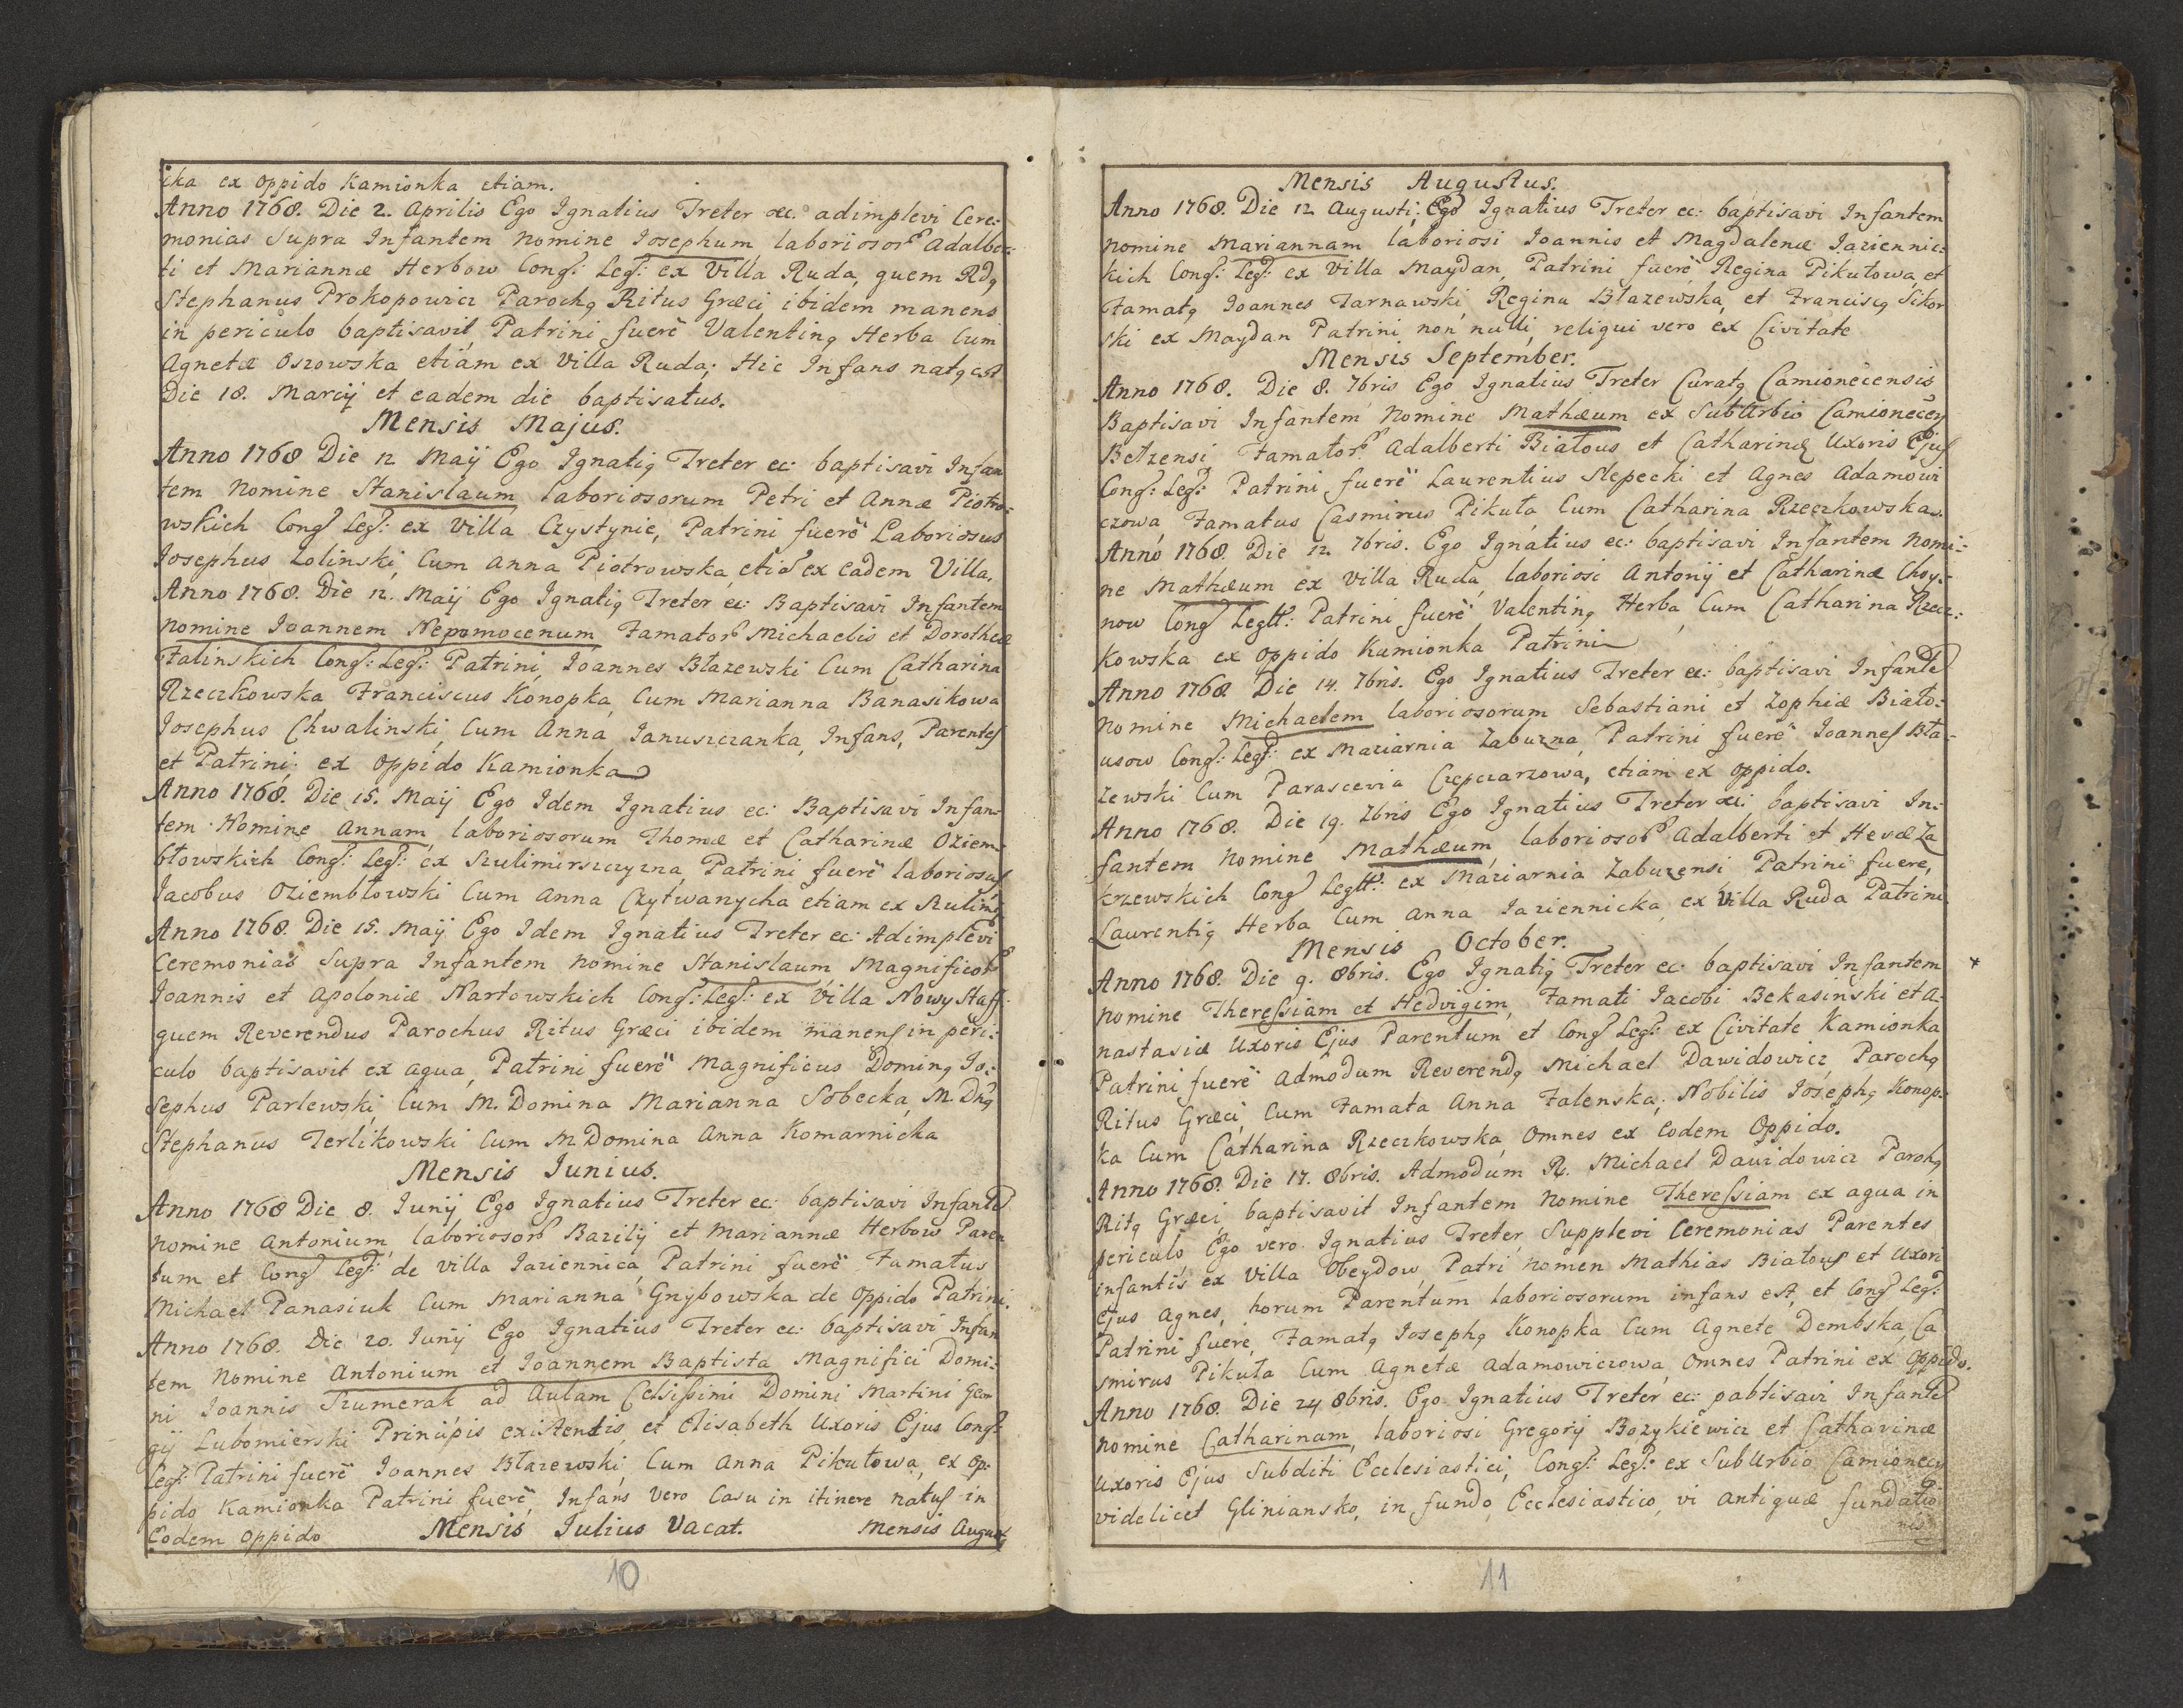 ika ex oppido Kamionka etiam.
Anno 1768. Die 2. Aprilis Ego Ignatius Treter &c. adimplevi Cere:
monias Supra Infantem nomine Josephum laboriosor Adalber:
ti et Mariannæ Herbow Cong: Leg: ex Villa Ruda, quem Rdq
Stephanus Prokopowicz Parochq Ritus Græci ibidem manens
in periculo baptisavit Patrini fuerē Valentinq Herba Cum
Agnetæ Oszowska etiam ex Villa Ruda; Hic Infans natq est
Die 18. Marcij et eadem die baptisatus.
Mensis Majus.
Anno 1768 Die 12 Maij Ego Ignatiq Treter ec: baptisavi Infan
tem Nomine Stanislaum laboriosorum Petri et Annæ Piotro:
wskich Cong Leg: ex Villa Czystynie, Patrini fuerē Laboriosus
Josephus Zolinski, Cum Anna Piotrowska, etiā ex eadem Villa.
Anno 1768. Die 12. Maij Ego Ignatiq Treter ec: Baptisavi Infantem
nomine Joannem Nepomocenum Famator Michaelis et Dorotheæ
Falinskich Cong: Leg: Patrini, Joannes Błazewski Cum Catharina
Rzeczkowska, Franciscus Konopka, Cum Marianna Banasikowa
Josephus Chwalinski, Cum Anna Januszczanka, Infans, Parentes
et Patrini; ex oppido Kamionka
Anno 1768. Die 15. Maij Ego Idem Ignatius ec: Baptisavi Infan-
tem Nomine Annam, laboriosorum Thomæ et Catharinæ Oziem-
błowskich Cong: Leg: ex Szulimirszczyzna, Patrini fuerē laboriosus
Jacobus Oziembłowski Cum Anna Czytwanycha etiam ex Szulim:
Anno 1768. Die 15. Maij Ego Idem Ignatius Treter ec: Adimplevi
Ceremonias Supra Infantem nomine Stanislaum Magnificor
Joannis et Apoloniæ Nartowskich Cong: Leg: ex Villa Nowy Staff
quem Reverendus Parochus Ritus Græci ibidem manens in peri:
culo baptisavit ex aqua, Patrini fuerē Magnificus Dominq Jo:
sephus Parlewski, Cum M. Domina Marianna Sobecka, M. Dnq
Stephanus Terlikowski Cum M Domina Anna Komarnicka
Mensis Junius.
Anno 1768 Die 8. Junij Ego Ignatius Treter ec: baptisavi Infantē
nomine Antonium, laboriosor Bazilij et Mariannæ Herbow Paren
tum et Cong Leg: de villa Jaziennica, Patrini fuerē Famatus
Michael Panasiuk Cum Marianna Gnybowska de Oppido Patrini.
Anno 1768. Die 20. Junij Ego Ignatius Treter ec: baptisavi Infan
tem Nomine Antonium et Joannem Baptista Magnifici Domi:
ni Joannis Szumerak ad Aulam Celsissimi Domini Martini Geor
gij Lubomierski Principis existentis, et Elisabeth Uxoris Ejus Cong:
Leg: Patrini fuerē Joannes Błazewski, Cum Anna Pikutowa, ex op:
pido Kamionka Patrini fuerē, Infans vero Casu in itinere natus in
Eodem oppido Mensis Julius Vacat. Mensis August
10
Mensis Augustus.
Anno 1768. Die 12 Augusti; Ego Ignatius Treter ec: baptisavi Infantem
nomine Mariannam laboriosi Joannis et Magdalenæ Jaziennic:
kich Cong: Leg: ex Villa Maydan, Patrini fuerē Regina Pikutowa, et
Famatq Joannes Tarnawski, Regina Błazewska, et Francisq Sikor
ski ex Maydan Patrini non nulli, reliqui vero ex Civitate
Mensis September.
Anno 1768. Die 8. 7bris Ego Ignatius Treter Curatq Camionecensis
Baptisavi Infantem nomine Mathæum ex SubUrbio Camionecen
Betzensi Famator Adalberti Białous et Catharinæ Uxoris Ejus
Cong: Leg: Patrini fuerē Laurentius Slepecki et Agnes Adamowi
czowa, Famatus Casmirus Pikuta Cum Catharina Rzeczkowska.
Anno 1768. Die 12. 7bris. Ego Ignatius ec: baptisavi Infantem nomi:
ne Mathæum ex Villa Ruda, laboriosi Antonij et Catharinæ Choy:
now Cong Legtt: Patrini fuerē Valentinq Herba, Cum Catharina Rzecz:
kowska ex oppido Kamionka Patrini
Anno 1768. Die 14. 7bris. Ego Ignatius Treter ec: baptisavi Infantē
nomine Michaelem laboriosorum Sebastiani et Zophiæ Biało:
usow Cong: Leg: ex Maziarnia Zabuzna, Patrini fuerē Joannes Bła-
zewski Cum Parascevia Czepczarzowa, etiam ex oppido.
Anno 1768. Die 19. 7bris Ego Ignatius Treter &c: baptisavi In:
fantem nomine Mathæum, laboriosor Adalberti et Hevæ Za
krzewskich Cong Legtt: ex Maziarnia Zabuzensi Patrini fuere,
Laurentiq Herba Cum Anna Jaziennicka, ex Villa Ruda Patrini
Mensis October.
Anno 1768. Die 9. 8bris. Ego Ignatiq Treter ec: baptisavi Infantem
nomine Theressiam et Hedvigim, Famati Jacobi Bekasinski et A-
nastasiæ Uxoris Ejus Parentum et Cong Leg: ex Civitate Kamionka
Patrini fuerē Admodum Reverendq Michael Dawidowicz Parochq
Ritus Græci, Cum Famata Anna Falenska; Nobilis Josephq Konop:
ka Cum Catharina Rzeczkowska, Omnes ex Eodem Oppido.
Anno 1768. Die 17. 8bris. Admodum R. Michael Dawidowicz Parohq
Ritq Græci, baptisavit Infantem Nomine Theressiam ex aqua in
periculo Ego vero Ignatius Treter, Supplevi Ceremonias Parentes
infantis ex Villa Obeydow, Patri nomen Mathias Białous et Uxori
Ejus Agnes, horum Parentum laboriosorum infans est, et Cong Leg:
Patrini fuere, Famatq Josephq Konopka Cum Agnete Dembska, Ca
smirus Pikuta Cum Agnetæ Adamowiczowa, Omnes Patrini ex Oppido.
Anno 1768. Die 24 8bris. Ego Ignatius Treter ec: pabtisavi Infantē
nomine Catharinam, laboriosi Gregorij Bozykiewicz et Catharinæ
Uxoris Ejus Subditi Ecclesiastici, Cong: Leg: ex SubUrbio Camionecen
videlicet Gliniansko, in fundo Ecclesiastico, vi antiquæ fundatio
nis
11